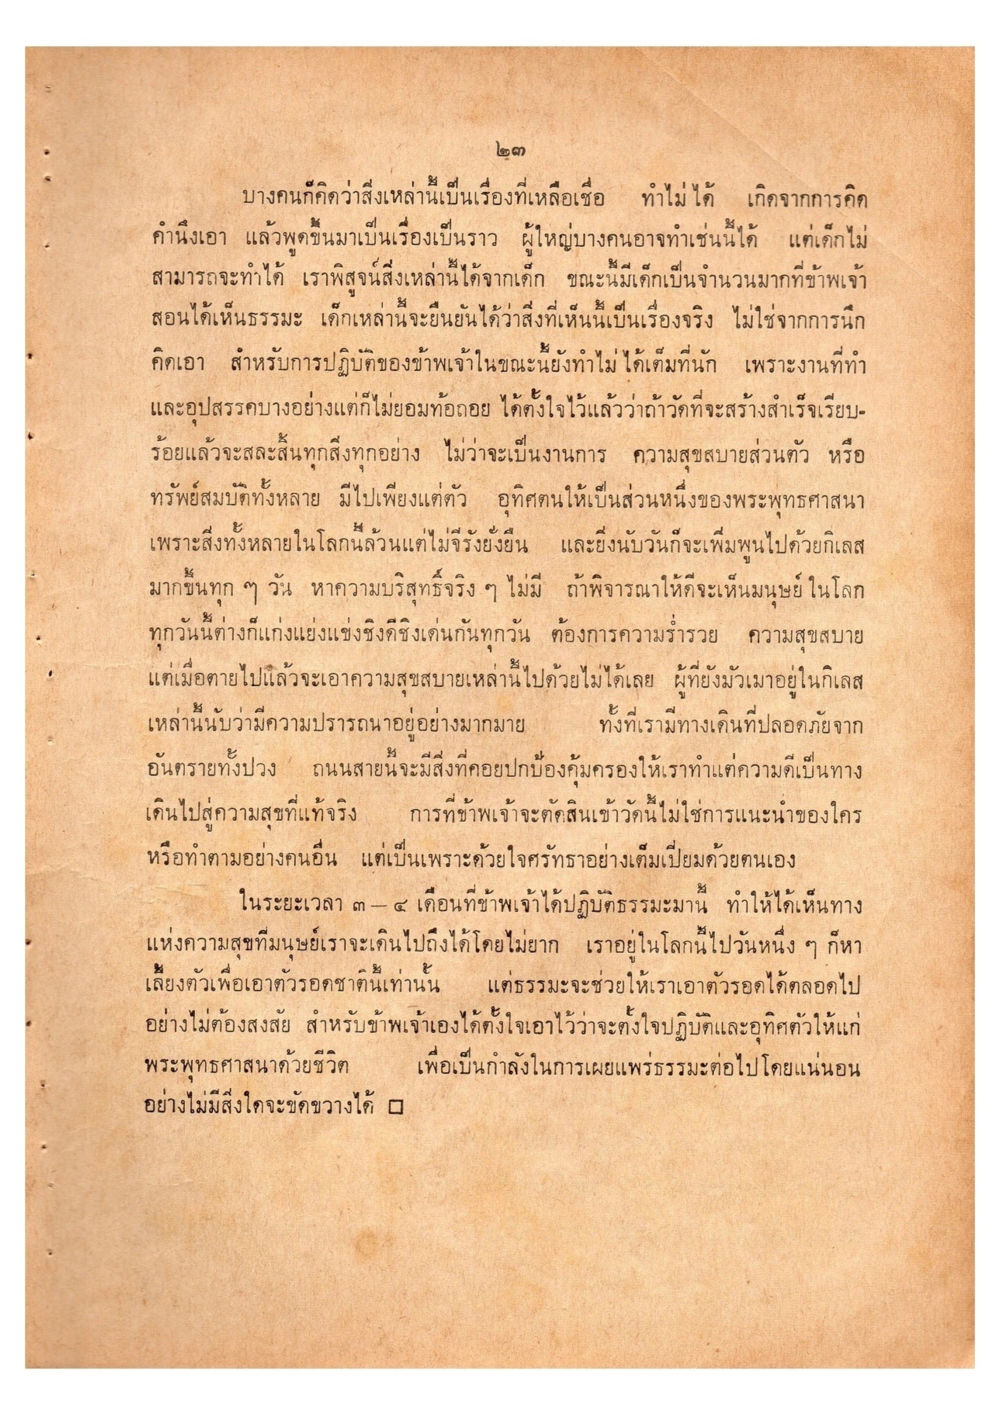 ๒๓
บางคนก็คิดว่าสิ่งเหล่านี้เป็นเรื่องที่เหลือเชื่อ ทำไม่ได้ เกิดจากการคิด
คำนึงเอา แล้วพูดขึ้นมาเป็นเรื่องเป็นราว ผู้ใหญ่บางคนอาจทำเช่นนี้ได้ แต่เด็กไม่
สามารถจะทำได้ เราพิสูจน์สิ่งเหล่านี้ได้จากเด็ก ขณะนี้มีเด็กเป็นจำนวนมากที่ข้าพเจ้า
สอนได้เห็นธรรมะ เด็กเหล่านี้จะยืนยันได้ว่าสิ่งที่เห็นนี้เป็นเรื่องจริง ไม่ใช่จากการนึก
คิดเอา สำหรับการปฏิบัติของข้าพเจ้าในขณะนี้ยังทำไม่ได้เต็มที่นัก เพราะงานที่ทำ
และอุปสรรคบางอย่างแต่ก็ไม่ยอมท้อถอย ได้ตั้งใจไว้แล้วว่าถ้าวัดที่จะสร้างสำเร็จเรียบ-
ร้อยแล้วจะสละสิ้นทุกสิ่งทุกอย่าง ไม่ว่าจะเป็นงานการ ความสุขสบายส่วนตัว หรือ
ทรัพย์สมบัติทั้งหลาย มีไปเพียงแต่ตัว อุทิศตนให้เป็นส่วนหนึ่งของพระพุทธศาสนา
เพราะสิ่งทั้งหลายในโลกนี้ล้วนแต่ไม่จีรังยั่งยืน และยิ่งนับวันก็จะเพิ่มพูนไปด้วยกิเลส
มากขึ้นทุก ๆ วัน หาความบริสุทธิ์จริง ๆ ไม่มี ถ้าพิจารณาให้ดีจะเห็นมนุษย์ในโลก
ทุกวันนี้ต่างก็แก่งแย่งแข่งชิงดีชิงเด่นกันทุกวัน ต้องการความร่ำรวย ความสุขสบาย
แต่เมื่อตายไปแล้วจะเอาความสุขสบายเหล่านี้ไปด้วยไม่ได้เลย ผู้ที่ยังมัวเมาอยู่ในกิเลส
เหล่านี้นับว่ามีความปรารถนาอยู่อย่างมากมาย ทั้งที่เรามีทางเดินที่ปลอดภัยจาก
อันตรายทั้งปวง ถนนสายนี้จะมีสิ่งที่คอยปกป้องคุ้มครองให้เราทำแต่ความดีเป็นทาง
เดินไปสู่ความสุขที่แท้จริง การที่ข้าพเจ้าจะตัดสินเข้าวัดนี้ไม่ใช่การแนะนำของใคร
หรือทำตามอย่างคนอื่น แต่เป็นเพราะด้วยใจศรัทธาอย่างเต็มเปี่ยมด้วยตนเอง
ในระยะเวลา ๓ – ๔ เดือนที่ข้าพเจ้าได้ปฏิบัติธรรมะมานี้ ทำให้ได้เห็นทาง
แห่งความสุขที่มนุษย์เราจะเดินไปถึงได้โดยไม่ยาก เราอยู่ในโลกนี้ไปวันหนึ่ง ๆ ก็หา
เลี้ยงตัวเพื่อเอาตัวรอดชาตินี้เท่านั้น แต่ธรรมะจะช่วยให้เราเอาตัวรอดได้ตลอดไป
อย่างไม่ต้องสงสัย สำหรับข้าพเจ้าเองได้ตั้งใจเอาไว้ว่าจะตั้งใจปฏิบัติและอุทิศตัวให้แก่
พระพุทธศาสนาด้วยชีวิต เพื่อเป็นกำลังในการเผยแพร่ธรรมะต่อไปโดยแน่นอน
อย่างไม่มีสิ่งใดจะขัดขวางได้ □